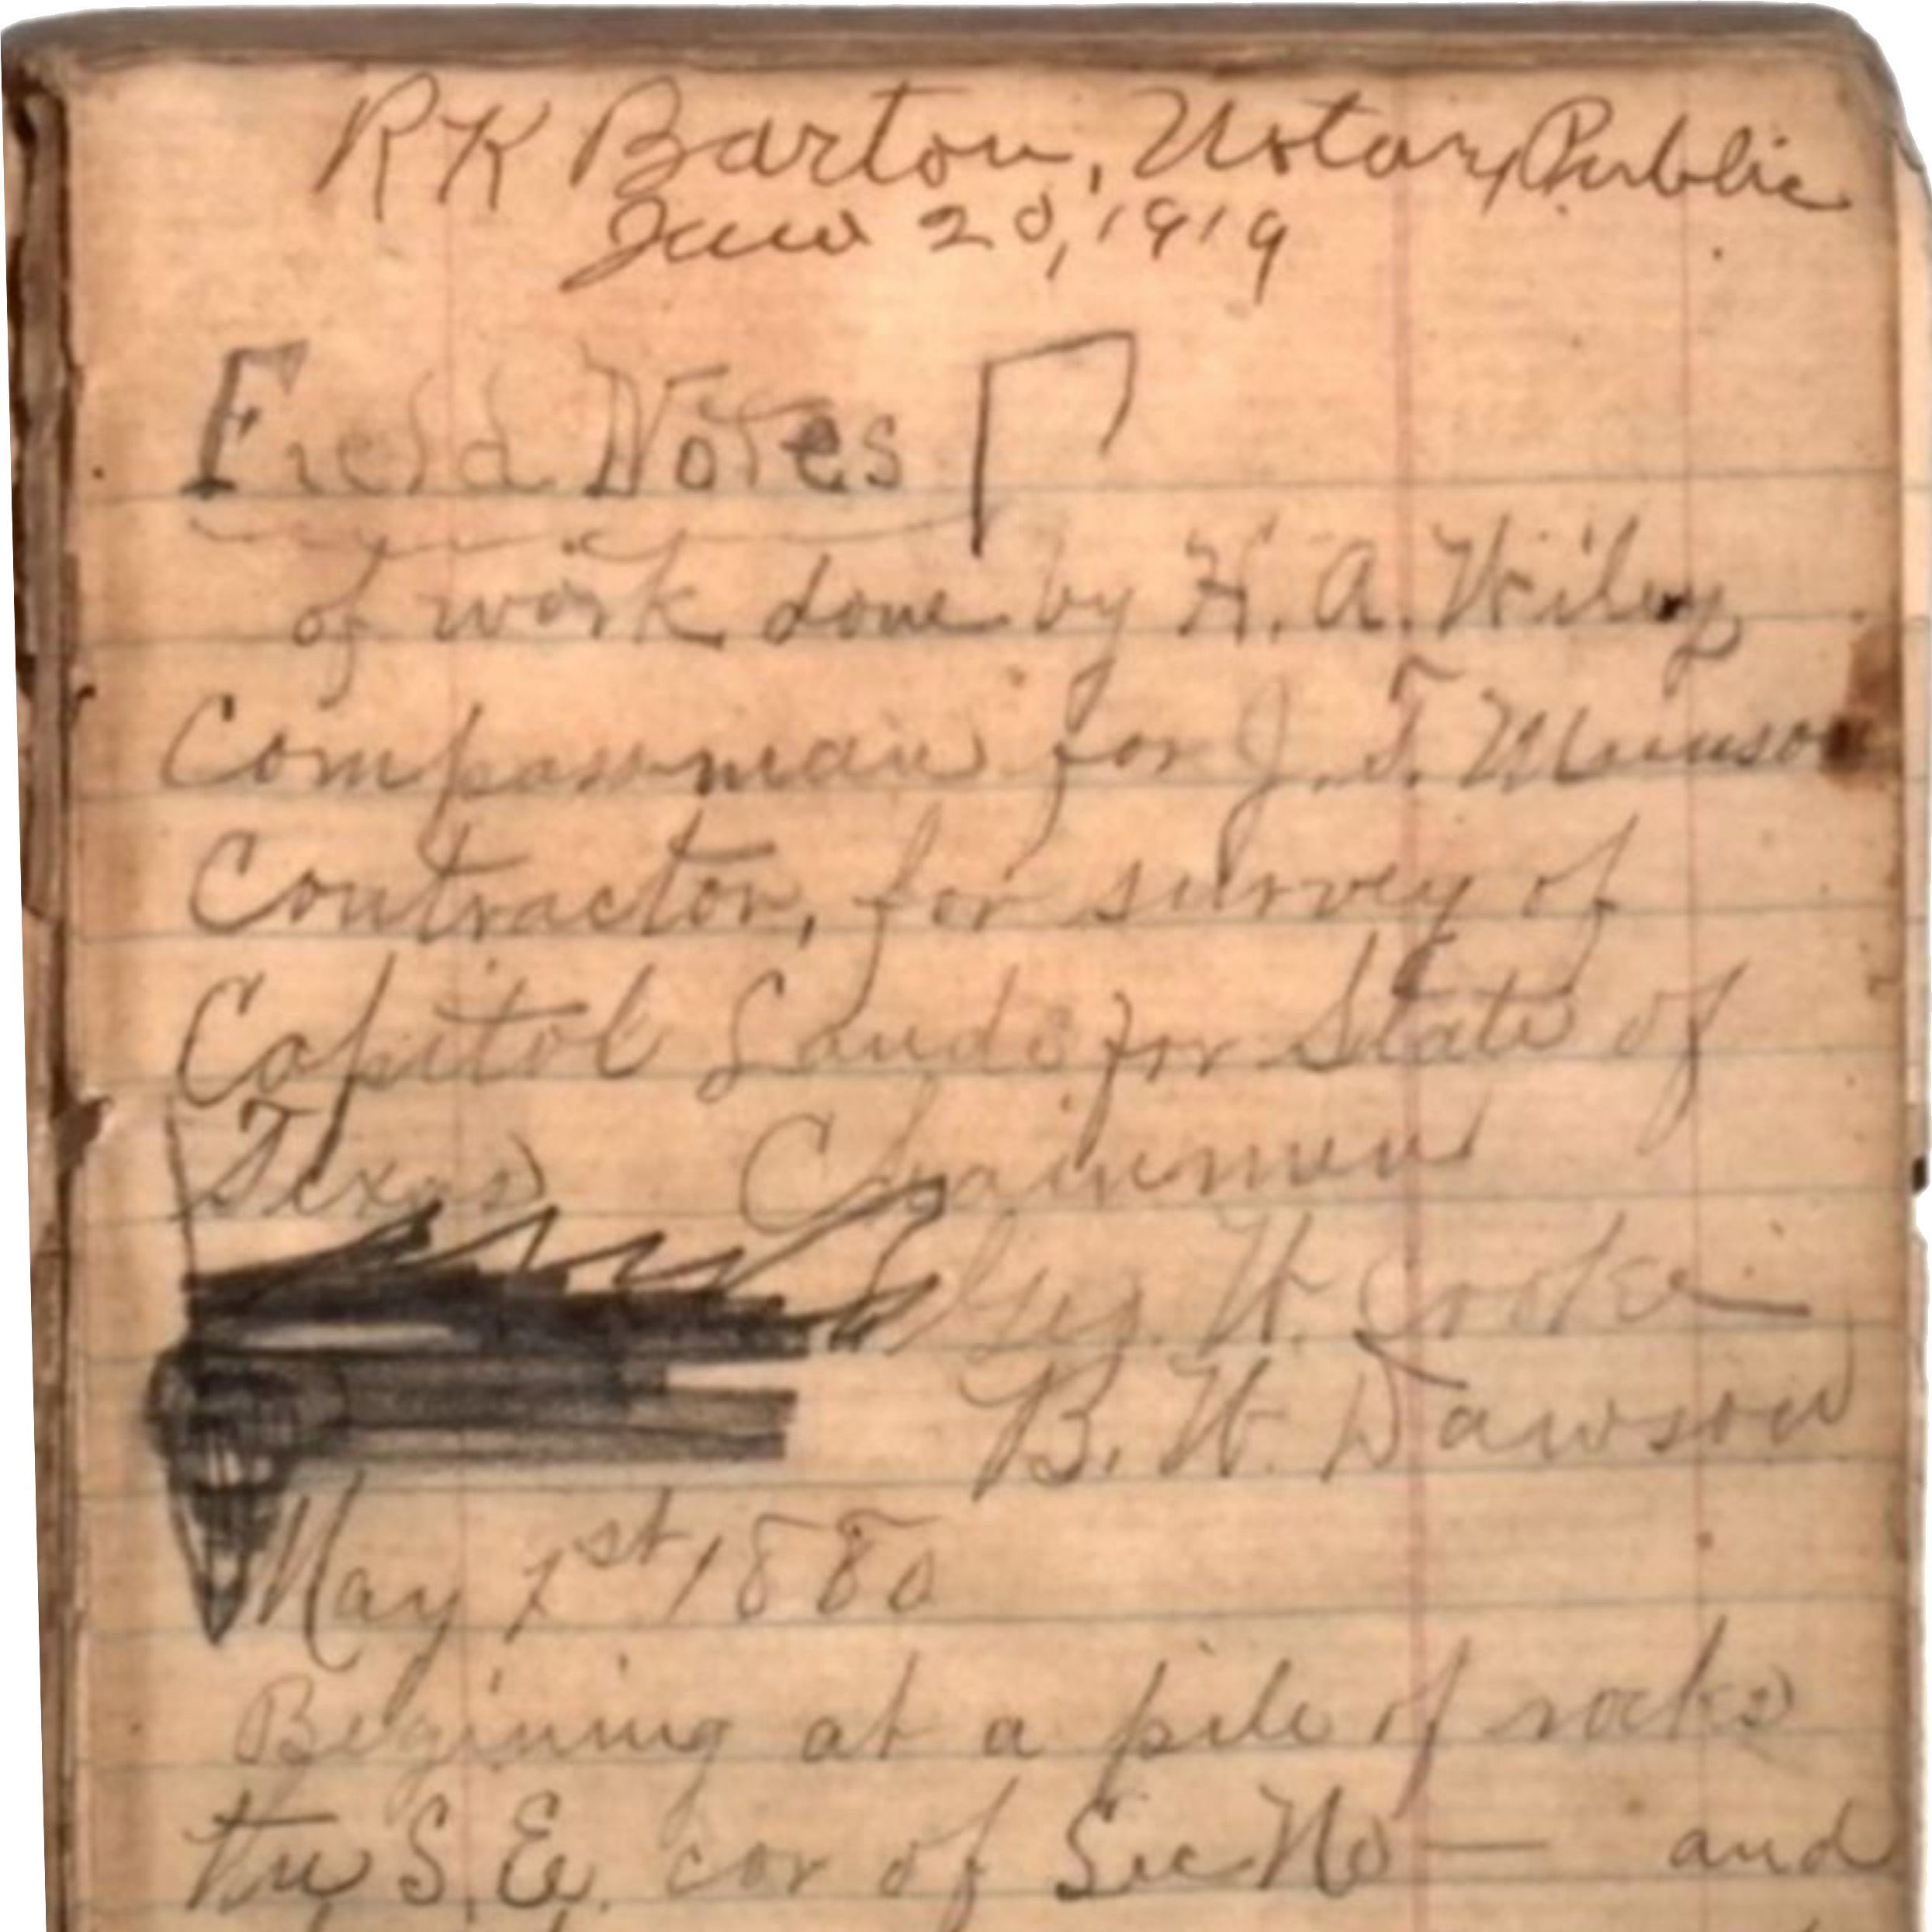 RK Barton, Notary Public
Jan 20, 1919
Field Notes
of work done by H. A. Wiley
Compassman for J. T. Munson
Contractor, for survey of
Capitol Lands for State of
Texas Chainmen
Geo. W. Cooke
B. W. Dawson
May 1st 1880
Begining at a pile of rocks
the S.E. cor of Sec No — and